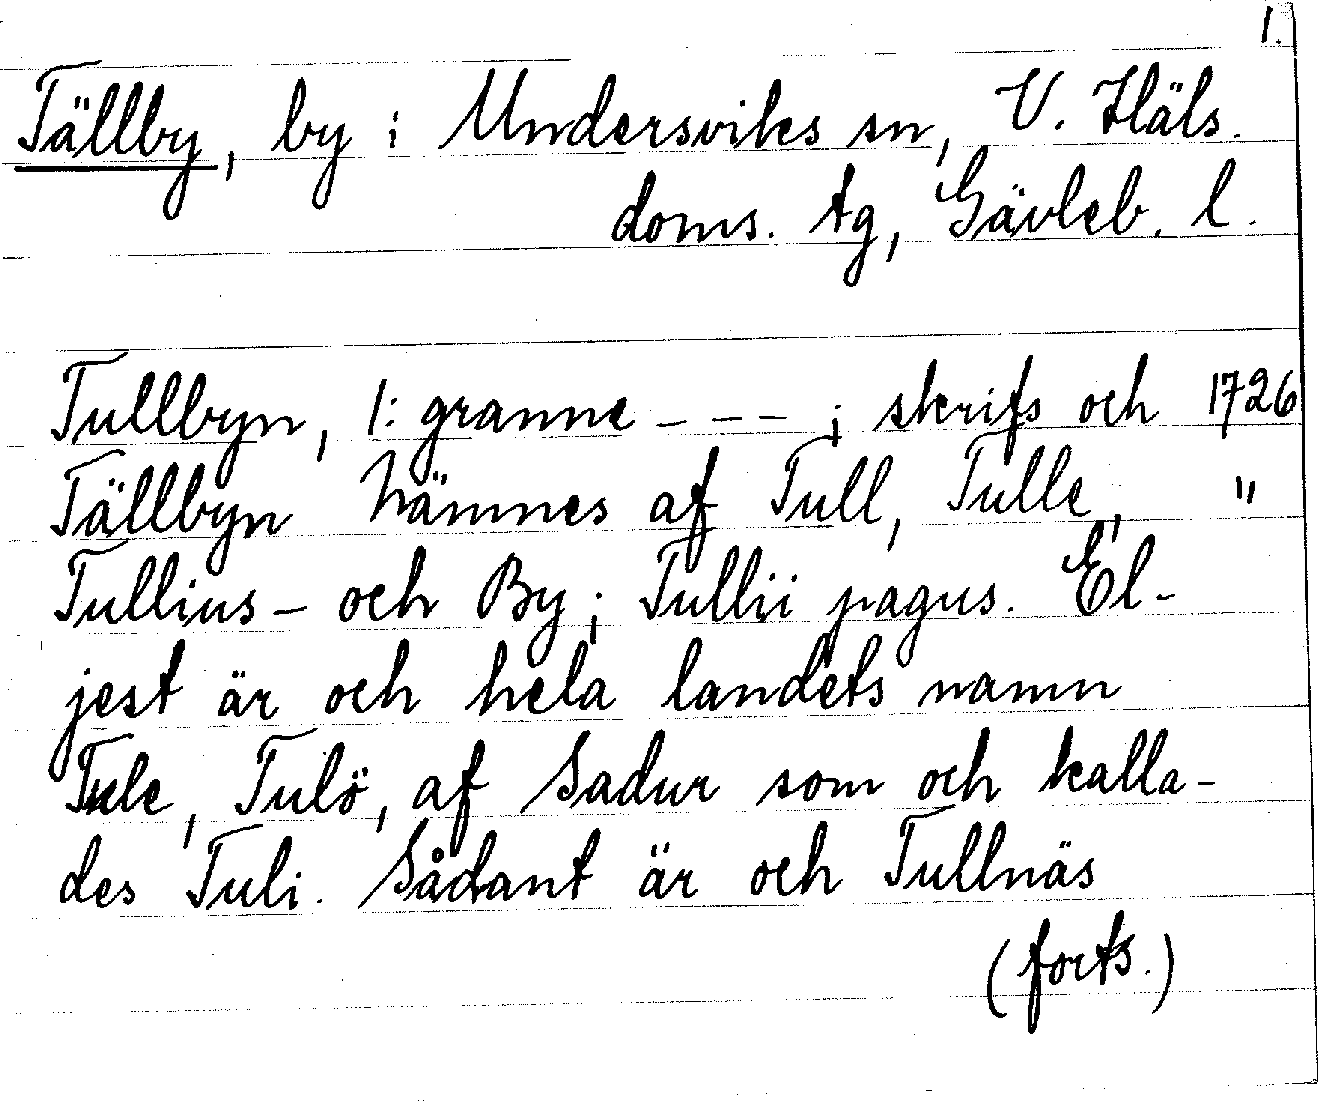 1.
Tällby, by i Undersviks sn, V. Häls.
doms. tg, Gävleb. l.
Tullbyn, 1: granne - - - ; skrifs och 1726
Tällbyn nämnes af Tull, Tulle, "
Tullius - och By; Tullii pagus. El-
jest är och hela landets namn
Tule, Tulö, af Sadur som och kalla-
des Tuli. Sådant är och Tullnäs
(forts.)